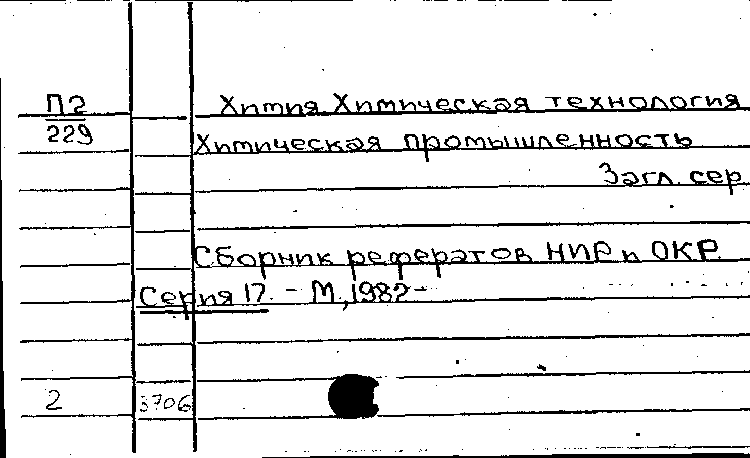 П2 Химия Химическая технология
229 Химическая промышленность
Загл. сер
Сборник рефератов НИР и ОКР
Серия 17. - М., 1982-
2 3706